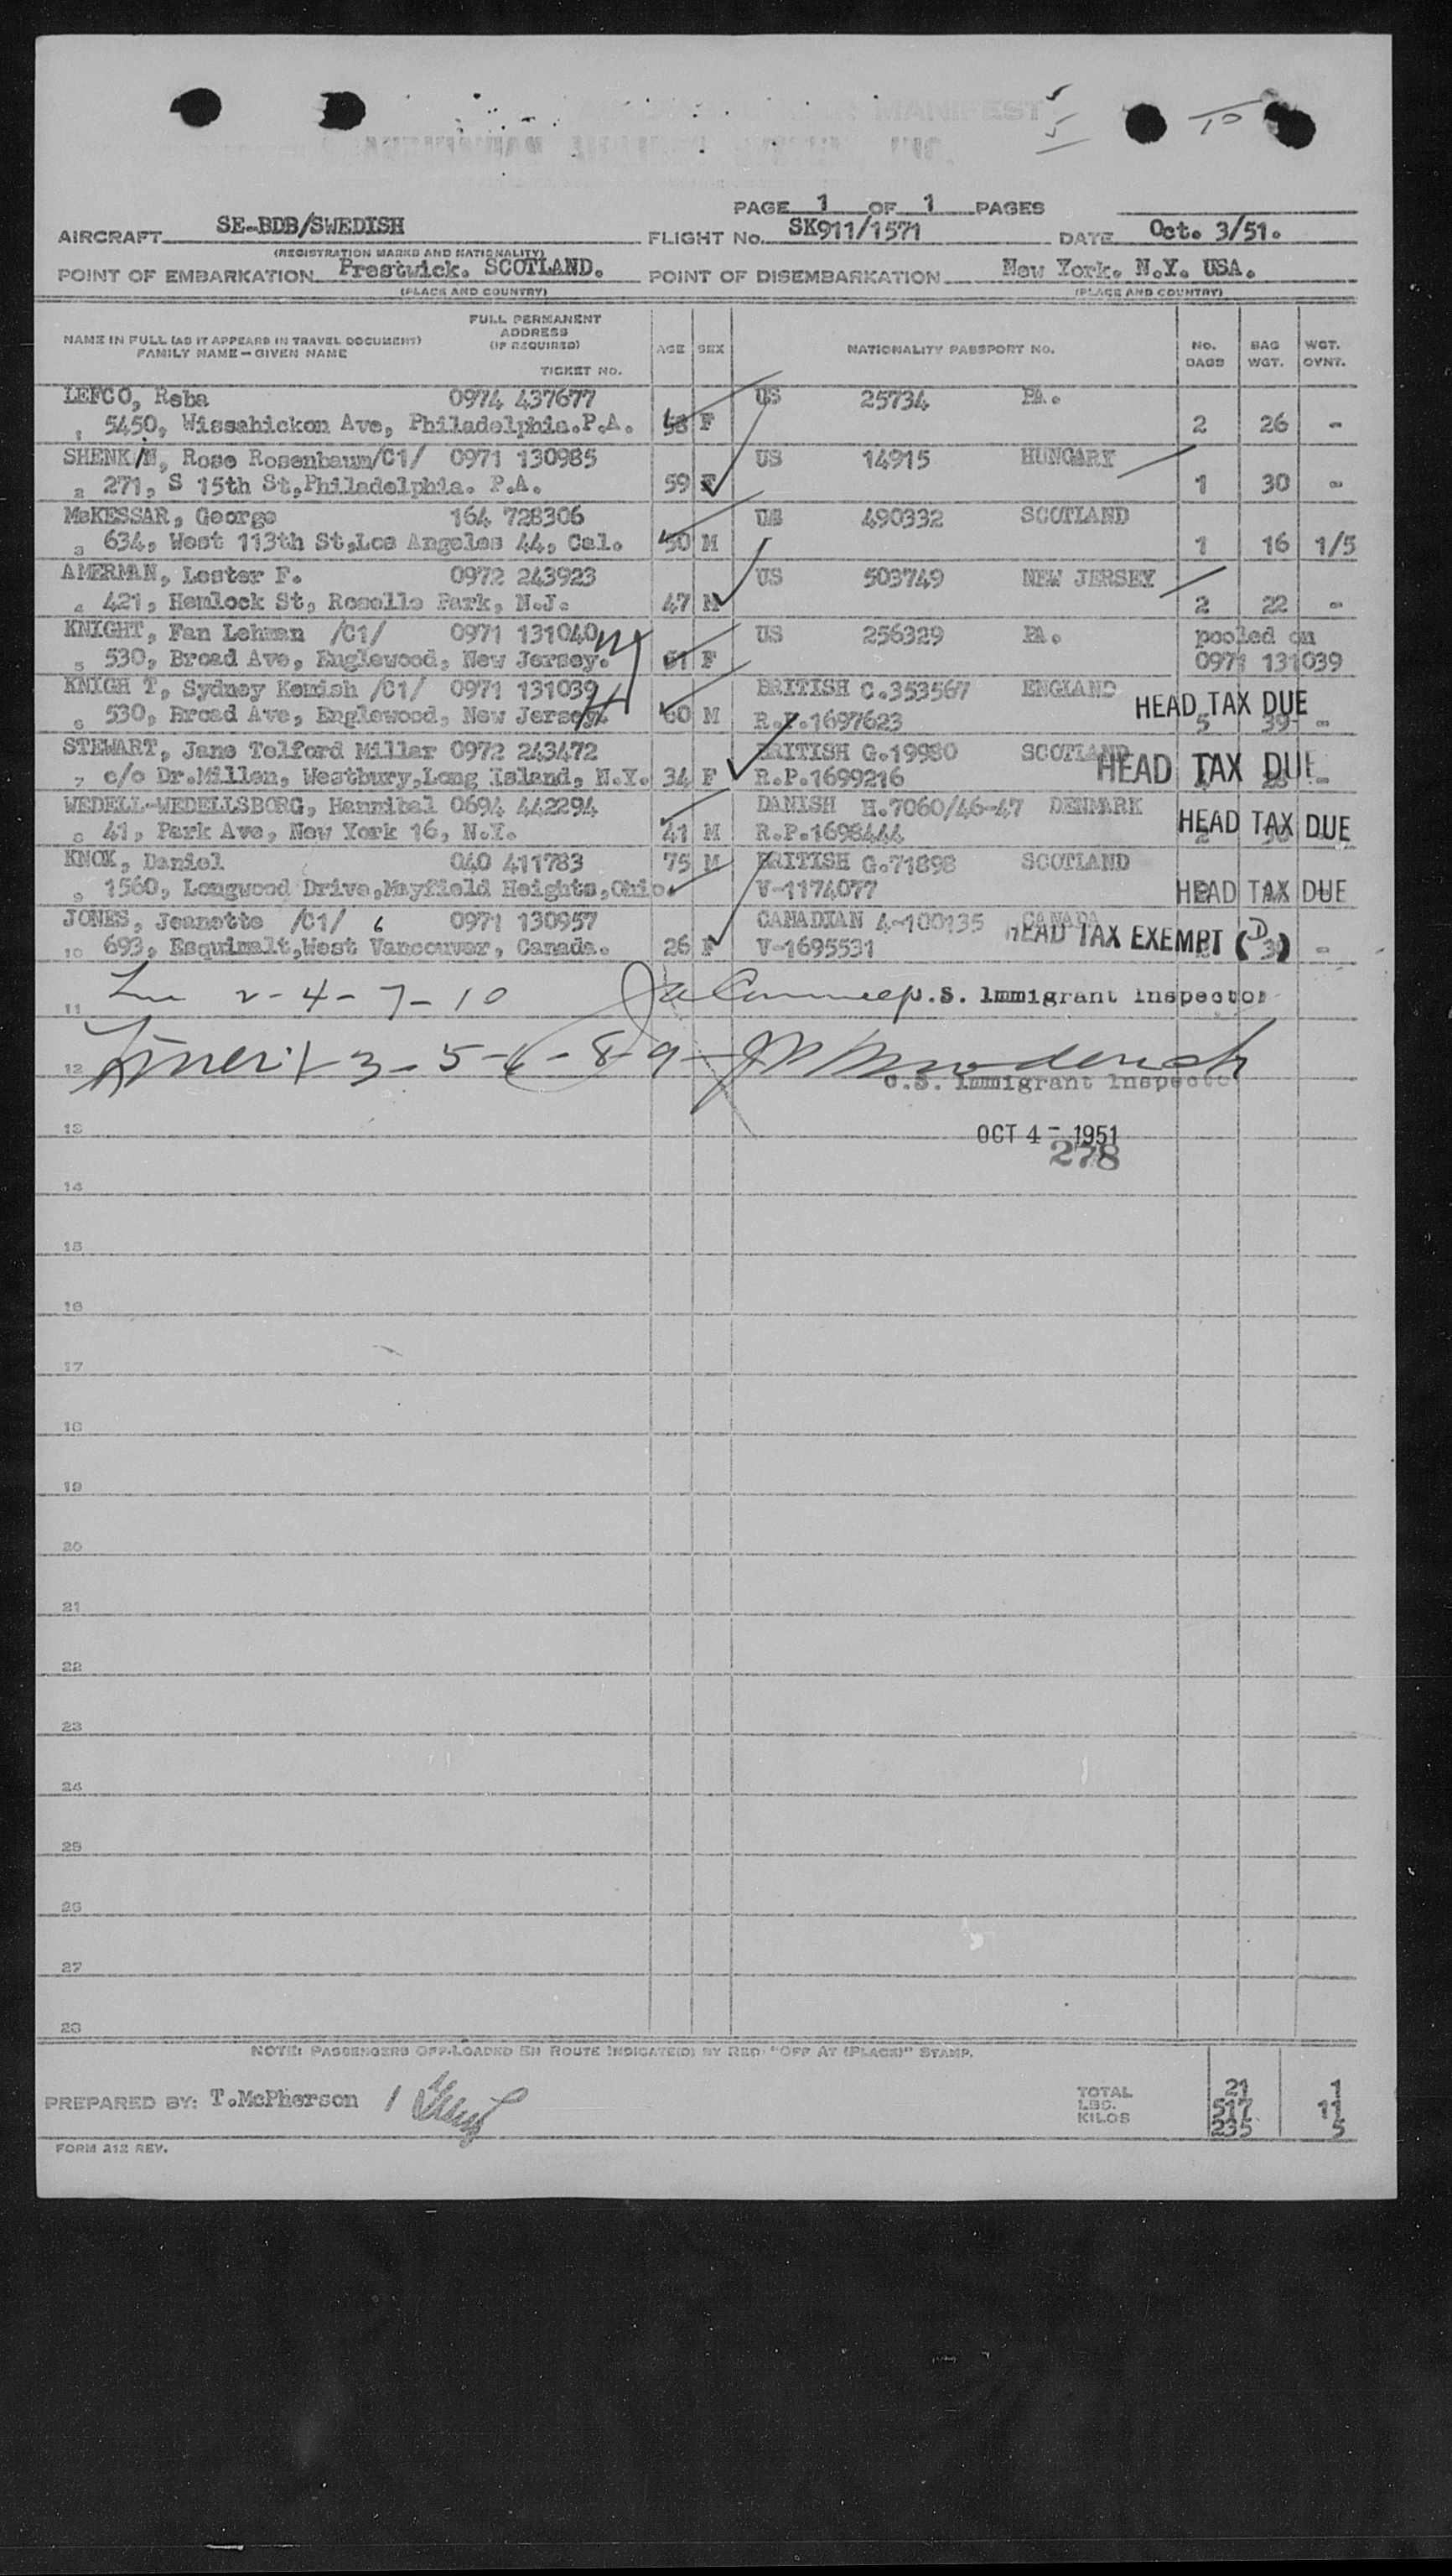 MANIFEST
PAGE 1 OF 1 PAGES
AIRCRAFT SE-BDB/SWEDISH FLIGHT No. SK911/1571 DATE Oct. 3/51.
(REGISTRATION MARKS AND NATIONALITY)
POINT OF EMBARKATION Prestwick. SCOTLAND. POINT OF DISEMBARKATION New York. N.Y. USA.
(PLACE AND COUNTRY) (PLACE AND COUNTRY)
NAME IN FULL (AS IT APPEARS IN TRAVEL DOCUMENT) FAMILY NAME – GIVEN NAME FULL PERMANENT ADDRESS (IF REQUIRED) TICKET NO. AGE SEX NATIONALITY PASSPORT NO. NO. BAGS BAG WGT. WGT. OVNT.
LEFCO, Reba 0974 437677 US 25734 PA.
1 5450, Wissahickon Ave, Philadelphia.P.A. 58 F 2 26 -
SHENK/N, Rose Rosenbaum/C1/ 0971 130985 US 14915 HUNGARY
2 271, S 15th St,Philadelphia. P.A. 59 F 1 30 -
McKESSAR, George 164 728306 US 490332 SCOTLAND
3 634, West 113th St,Los Angeles 44, Cal. 50 M 1 16 1/5
AMERMAN, Lester F. 0972 243923 US 503749 NEW JERSEY
4 421, Hemlock St, Roselle Park, N.J. 47 M 2 22 -
KNIGHT, Fan Lehman /C1/ 0971 131040 US 256329 PA. pooled on
5 530, Broad Ave, Englewood, New Jersey. 61 F 0971 131039
KNIGH T, Sydney Kemish /C1/ 0971 131039 BRITISH C.353567 ENGLAND HEAD TAX DUE
6 530, Broad Ave, Englewood, New Jersey. 60 M R.P.1697623 5 39 -
STEWART, Jane Telford Millar 0972 243472 BRITISH G.19980 SCOTLAND HEAD TAX DUE
7 c/o Dr.Millen, Westbury,Long Island, N.Y. 34 F R.P.1699216 -
WEDELL-WEDELLSBORG, Hannibal 0694 442294 DANISH H.7060/46-47 DENMARK HEAD TAX DUE
8 41, Park Ave, New York 16, N.Y. 41 M R.P.1698444
KNOX, Daniel 040 411783 75 M BRITISH G.71898 SCOTLAND
9 1560, Longwood Drive,Mayfield Heights,Ohio. V-1174077 HEAD TAX DUE
JONES, Jeanette /C1/ 6 0971 130957 CANADIAN 4-100135 CANADA
10 693, Esquimalt,West Vancouver, Canada. 26 F V-1695531 HEAD TAX EXEMPT (D) -
11 2-4-7-10 U.S. Immigrant Inspector
12 3-5-6-8-9-
U.S. Immigrant Inspector
13 OCT 4 - 1951
278
14
15
16
17
18
19
20
21
22
23
24
25
26
27
28
NOTE: PASSENGERS OFF-LOADED EN ROUTE INDICATE(D) BY RED "OFF AT (PLACE)" STAMP.
PREPARED BY: T.McPherson
TOTAL 21 1
LBS. 517 11
KILOS 235 5
FORM 212 REV.